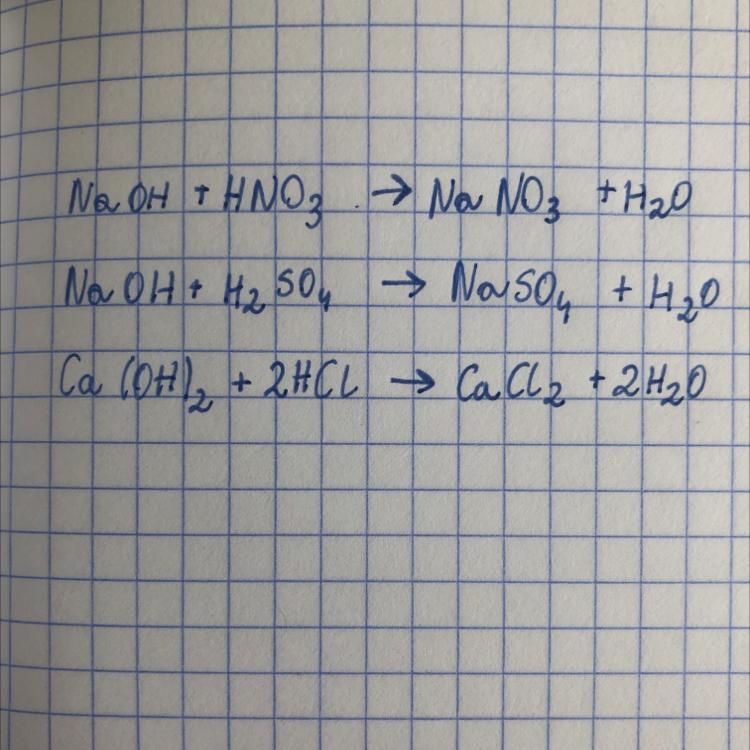 NaOH + HNO₃ → NaNO₃ + H₂O
NaOH + H₂SO₄ → NaSO₄ + H₂O
Ca(OH)₂ + 2HCl → CaCl₂ + 2H₂O